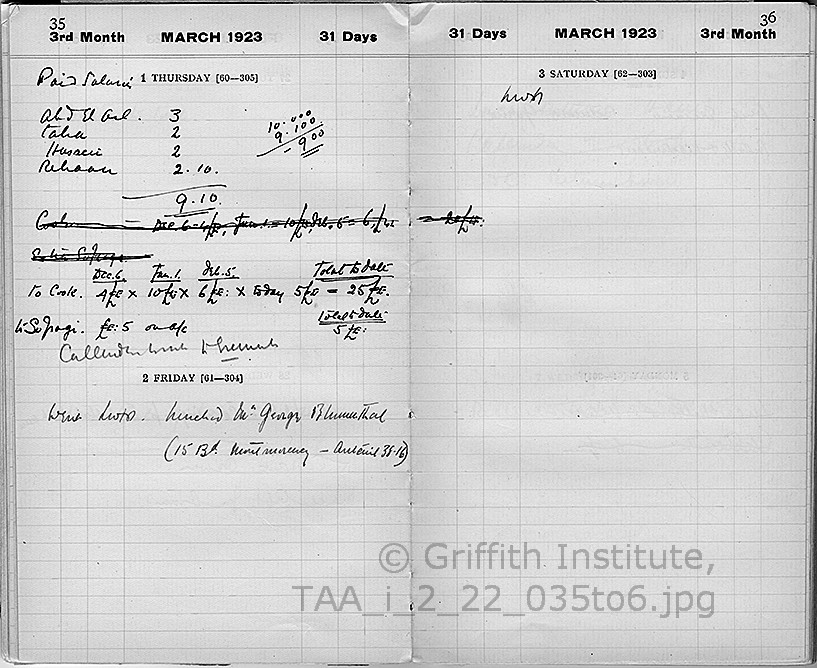 35
3rd Month MARCH 1923 31 Days
1 THURSDAY [60—305]
Paid Salaries
Abd El Aal. 3
Taha 2
Hussein 2
Rehaan 2.10.
9.10
10.000
9.100
- 900
Cook — Dec. 6 = 4/£E, Jan. 1. = 10/£E, Feb. 5 = 6/£E = 20/£E.
Dec. 6. Jan. 1. Feb. 5. Total to date
To Cook. 4£E x 10£E x 6£E: x today 5£E = 25£E.
to Sofragi. £E: 5 on a/c Total to date
5£E:
Callender
2 FRIDAY [61—304]
Went Luxor. Lunched Mrs George Blumenthal
(15 Bd. Montmorency — Auteuil 35-16)
31 Days MARCH 1923 3rd Month
36
3 SATURDAY [62—303]
Luxor
© Griffith Institute,
TAA_i_2_22_035to6.jpg